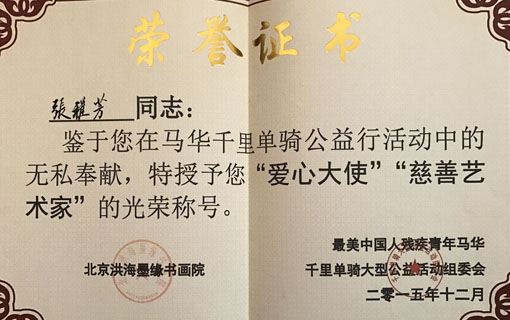 荣誉证书
張雅芳 同志：
鉴于您在马华千里单骑公益行活动中的
无私奉献，特授予您“爱心大使”“慈善艺
术家”的光荣称号。
北京洪海墨缘书画院
最美中国人残疾青年马华
千里单骑大型公益活动组委会
二零一五年十二月